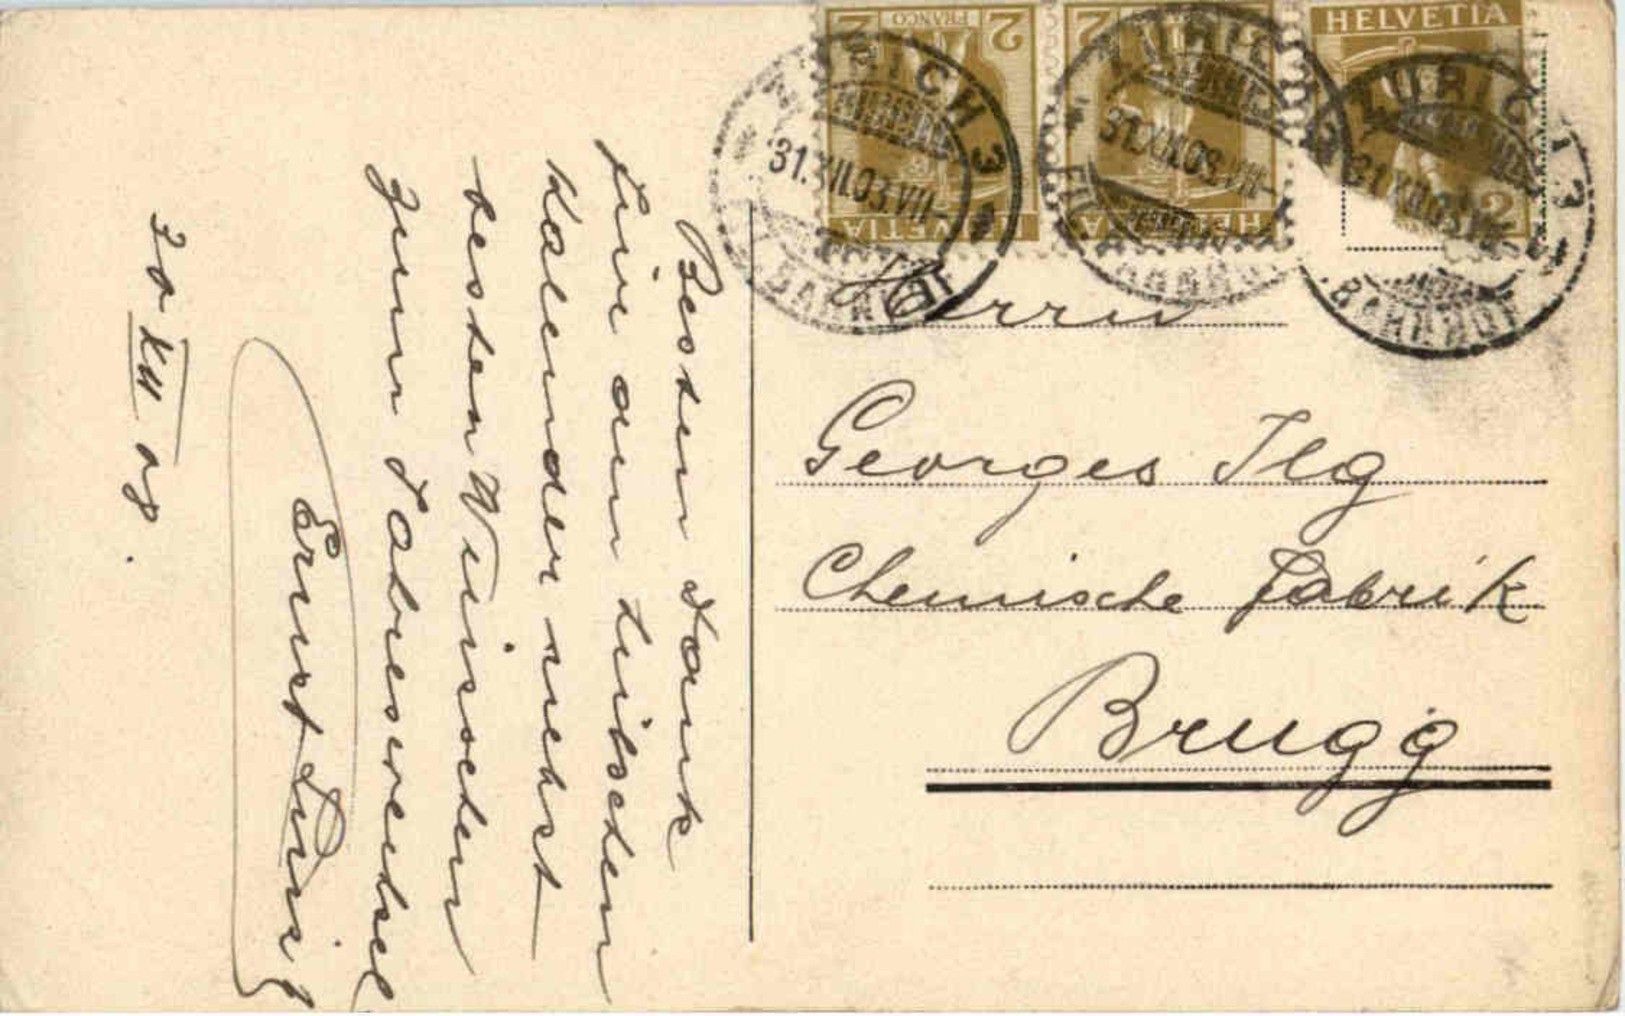 Besten Dank
für den hübschen
Kalender nebst
besten Wünschen
zum Jahreswechsel
Ernst
30 XII 08.
FRANCO
2 2
HELVETIA
2
HELVETIA
HELVETIA
2
ZÜRICH 3
31.XII.08.VII-
BAHNHOF
ZÜRICH
31.XII.08.VII-
BAHNHOF
ZÜRICH
31.XII.08.VII-
BAHNHOF
Herrn
Georges Ilg
Chemische Fabrik
Brugg